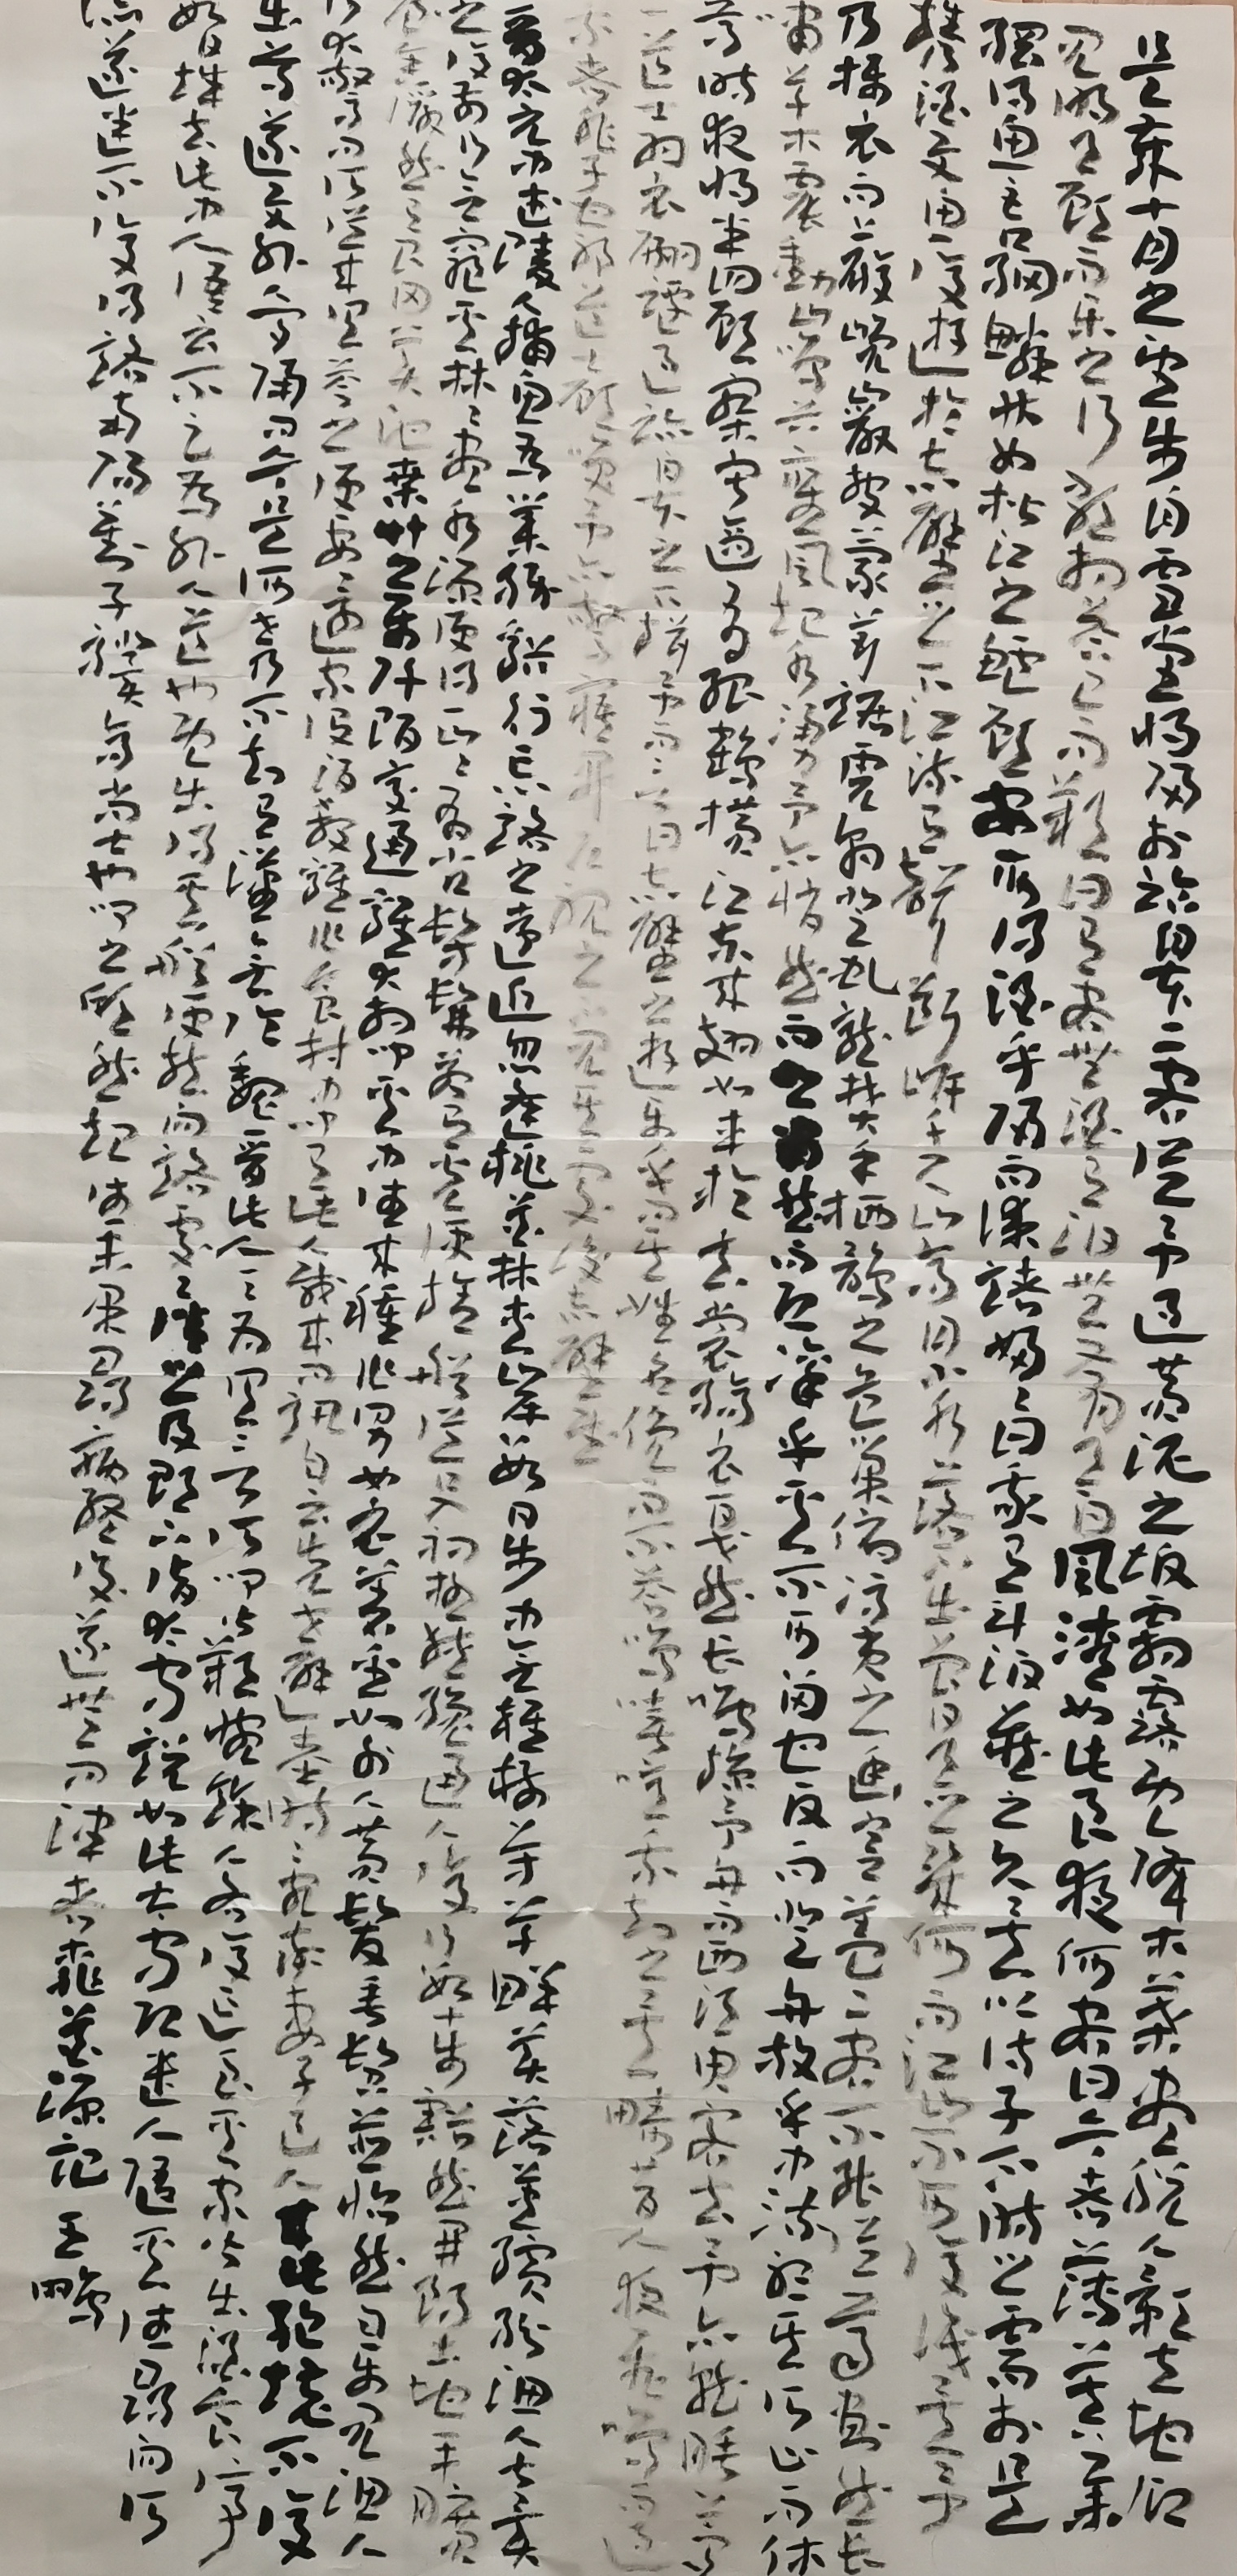 是歲十月之望步自雪堂將歸於臨皋二客從予過黃泥之坂霜露既降木葉盡脫人影在地仰
見明月顧而樂之行歌相答已而歎曰有客無酒有酒無肴月白風清如此良夜何客曰今者薄暮舉
網得魚巨口細鱗狀如松江之鱸顧安所得酒乎歸而謀諸婦婦曰我有斗酒藏之久矣以待子不時之需於是
攜酒與魚復遊於赤壁之下江流有聲斷岸千尺山高月小水落石出曾日月之幾何而江山不可復識矣予
乃攝衣而上履巉巖披蒙茸踞虎豹登虬龍攀棲鶻之危巢俯馮夷之幽宮蓋二客不能從焉劃然長
嘯草木震動山鳴谷應風起水涌予亦悄然而悲肅然而恐凜乎其不可留也反而登舟放乎中流聽其所止而休
焉時夜將半四顧寂寥適有孤鶴橫江東來翅如車輪玄裳縞衣戛然長鳴掠予舟而西須臾客去予亦就睡夢
一道士羽衣翩躚過臨皋之下揖予而言曰赤壁之遊樂乎問其姓名俛而不答嗚呼噫嘻我知之矣疇昔之夜飛鳴而過
我者非子也耶道士顧笑予亦驚寤開戶視之不見其處後赤壁賦
晉太元中武陵人捕魚為業緣谿行忘路之遠近忽逢桃花林夾岸數百步中無雜樹芳草鮮美落英繽紛漁人甚異
之復前行欲窮其林林盡水源便得一山山有小口髣髴若有光便捨船從口入初極狹纔通人復行數十步豁然開朗土地平曠
屋舍儼然有良田美池桑竹之屬阡陌交通雞犬相聞其中往來種作男女衣著悉如外人黃髮垂髫並怡然自樂見漁人
乃大驚問所從來具答之便要還家設酒殺雞作食村中聞有此人咸來問訊自云先世避秦時亂率妻子邑人來此絕境不復
出焉遂與外人間隔問今是何世乃不知有漢無論魏晉此人一一為具言所聞皆歎惋餘人各復延至其家皆出酒食停
數日辭去此中人語云不足為外人道也既出得其船便扶向路處處誌之及郡下詣太守說如此太守即遣人隨其往尋向所
誌遂迷不復得路南陽劉子驥高尚士也聞之欣然規往未果尋病終後遂無問津者桃花源記 王